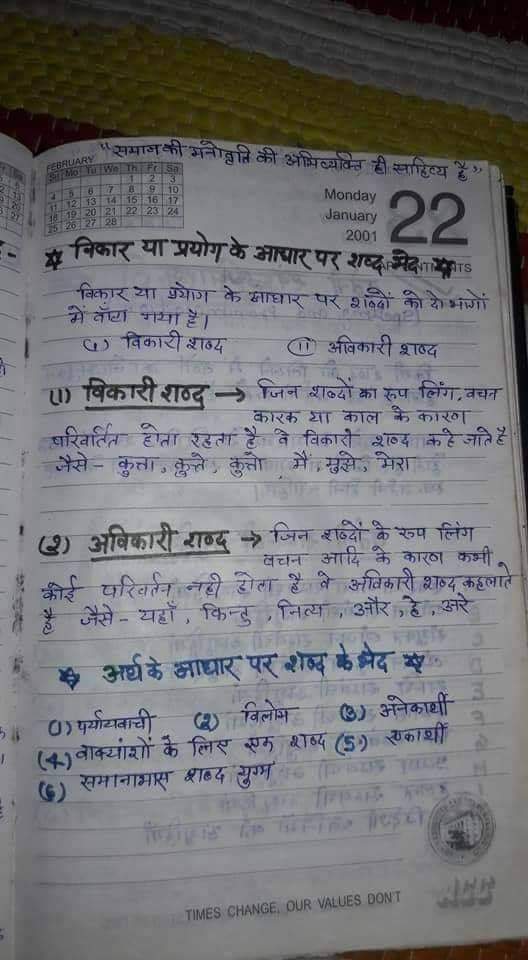 "समाज की मनोवृति की अभिव्यक्ति ही साहित्य है"
FEBRUARY
Su Mo Tu We Th Fr Sa
1 2 3
4 5 6 7 8 9 10
11 12 13 14 15 16 17
18 19 20 21 22 23 24
25 26 27 28
Monday
January
2001
22
* विकार या प्रयोग के आधार पर शब्द भेद *
विकार या प्रयोग के आधार पर शब्दों को दो भागों
में बाँटा गया है।
(i) विकारी शब्द (ii) अविकारी शब्द
(1) विकारी शब्द → जिन शब्दों का रूप लिंग, वचन
कारक या काल के कारण
परिवर्तित होता रहता है वे विकारी शब्द कहे जाते है
जैसे - कुत्ता, कुत्ते, कुत्तो मैं, मुझे, मेरा
(२) अविकारी शब्द → जिन शब्दों के रूप लिंग
वचन आदि के कारण कभी
कोई परिवर्तन नही होता है वे अविकारी शब्द कहलाते
है जैसे - यहाँ, किन्तु, नित्य, और, हे, अरे
* अर्थ के आधार पर शब्द के भेद *
(1) पर्यायवाची (2) विलोम (3) अनेकार्थी
(4) वाक्यांशो के लिए एक शब्द (5) एकार्थी
(6) समानाभास शब्द युग्म
TIMES CHANGE, OUR VALUES DON'T